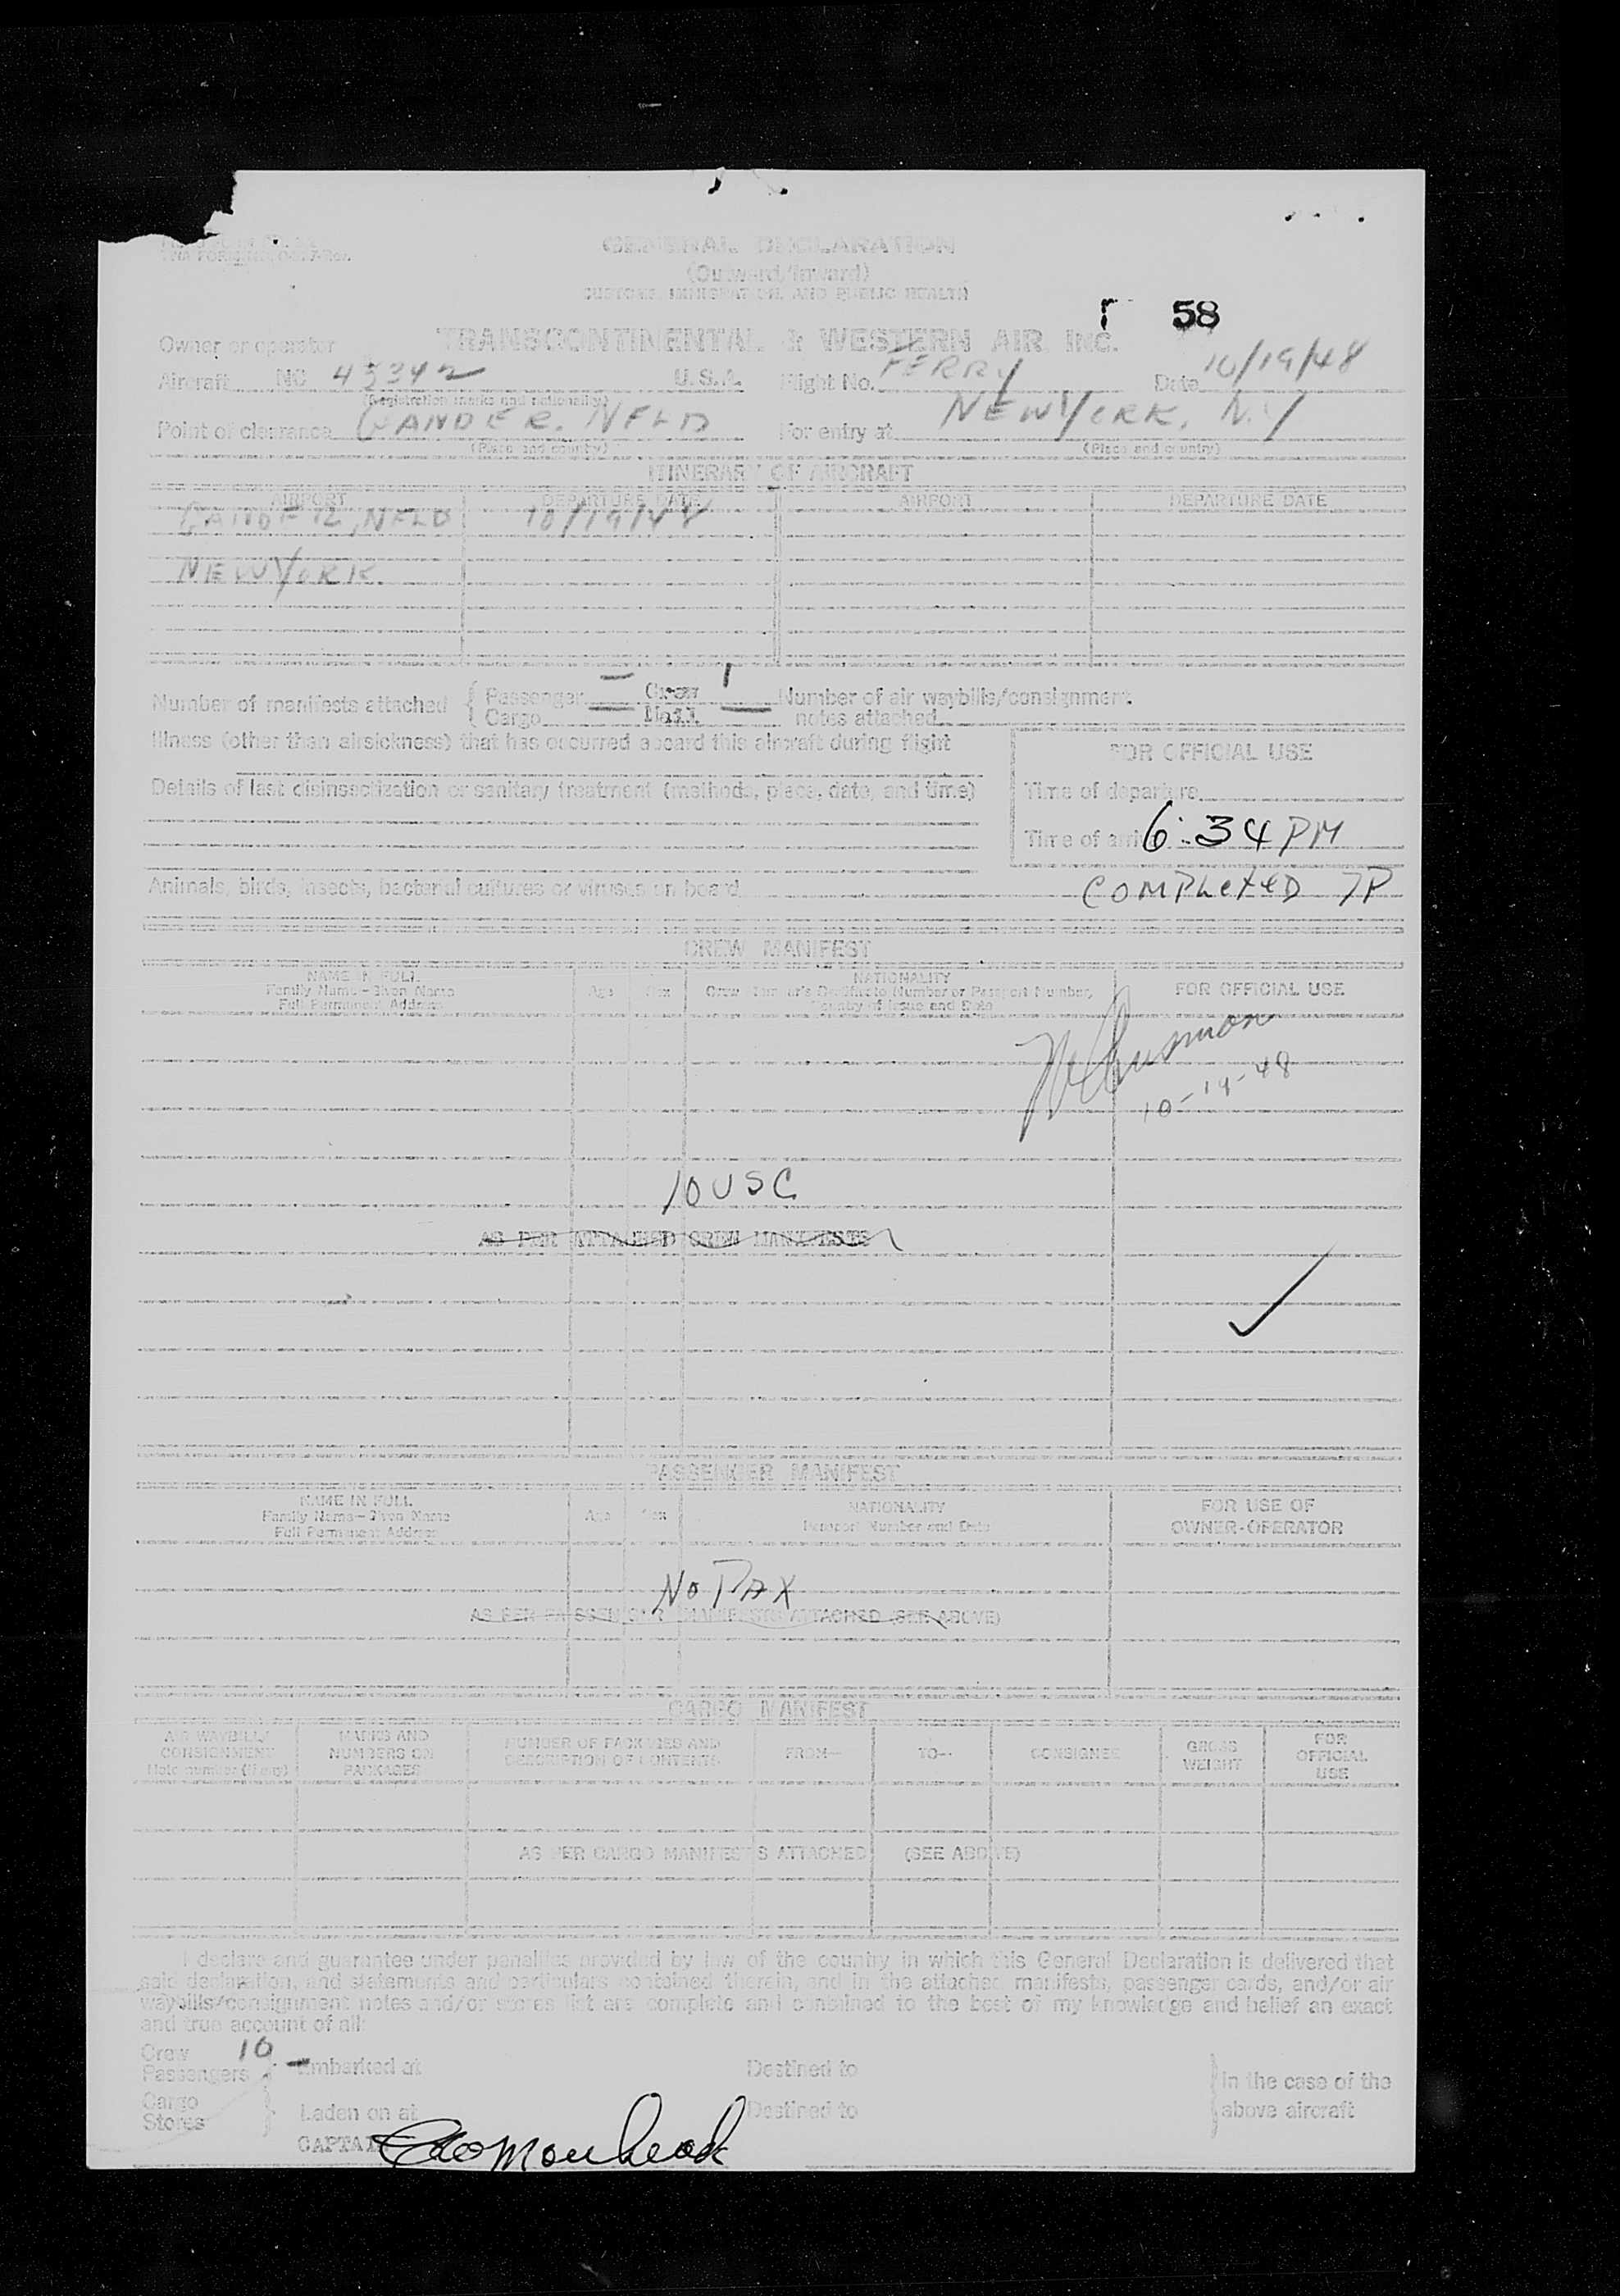 GENERAL DECLARATION
(Outward/Inward)
CUSTOMS, IMMIGRATION, AND PUBLIC HEALTH
58
Owner or operator TRANSCONTINENTAL & WESTERN AIR, INC.
Aircraft NC 45342 U.S.A. Flight No. FERRY Date 10/19/48
(Registration marks and nationality)
Point of clearance GANDER, NFLD For entry at NEW YORK, N.Y
(Place and country) (Place and country)
ITINERARY OF AIRCRAFT
AIRPORT DEPARTURE DATE AIRPORT DEPARTURE DATE
GANDER, NFLD 10/19/48
NEW YORK.
Number of manifests attached { Passenger — Crew 1 Number of air waybills/consignment
Cargo — Mail — notes attached
Illness (other than airsickness) that has occurred aboard this aircraft during flight
FOR OFFICIAL USE
Details of last disinsectization or sanitary treatment (methods, place, date, and time)
Time of departure
Time of arri 6:34 PM
Animals, birds, insects, bacterial cultures or viruses on board COMPLETED 7P
CREW MANIFEST
NAME IN FULL Age Sex NATIONALITY FOR OFFICIAL USE
Family Name—Given Name Crew Member's Certificate Number or Passport Number,
Full Permanent Address Country of Issue and Date
10-19-48
10 USC
AS PER ATTACHED CREW MANIFESTS
PASSENGER MANIFEST
NAME IN FULL Age Sex NATIONALITY FOR USE OF
Family Name—Given Name Passport Number and Date OWNER-OPERATOR
Full Permanent Address
No PAX
AS PER PASSENGER MANIFESTS ATTACHED (SEE ABOVE)
CARGO MANIFEST
AIR WAYBILL/ MARKS AND NUMBER OF PACKAGES AND FROM— TO— CONSIGNEE GROSS FOR
CONSIGNMENT NUMBERS ON DESCRIPTION OF CONTENTS WEIGHT OFFICIAL
Note number (if any) PACKAGES USE
AS PER CARGO MANIFESTS ATTACHED (SEE ABOVE)
I declare and guarantee under penalties provided by law of the country in which this General Declaration is delivered that
said declaration, and statements and particulars contained therein, and in the attached manifests, passenger cards, and/or air
waybills/consignment notes and/or stores list are complete and contained to the best of my knowledge and belief an exact
and true account of all:
Crew 10
Passengers } — Embarked at Destined to } In the case of the
Cargo
Stores } Laden on at Destined to above aircraft
CAPTAI